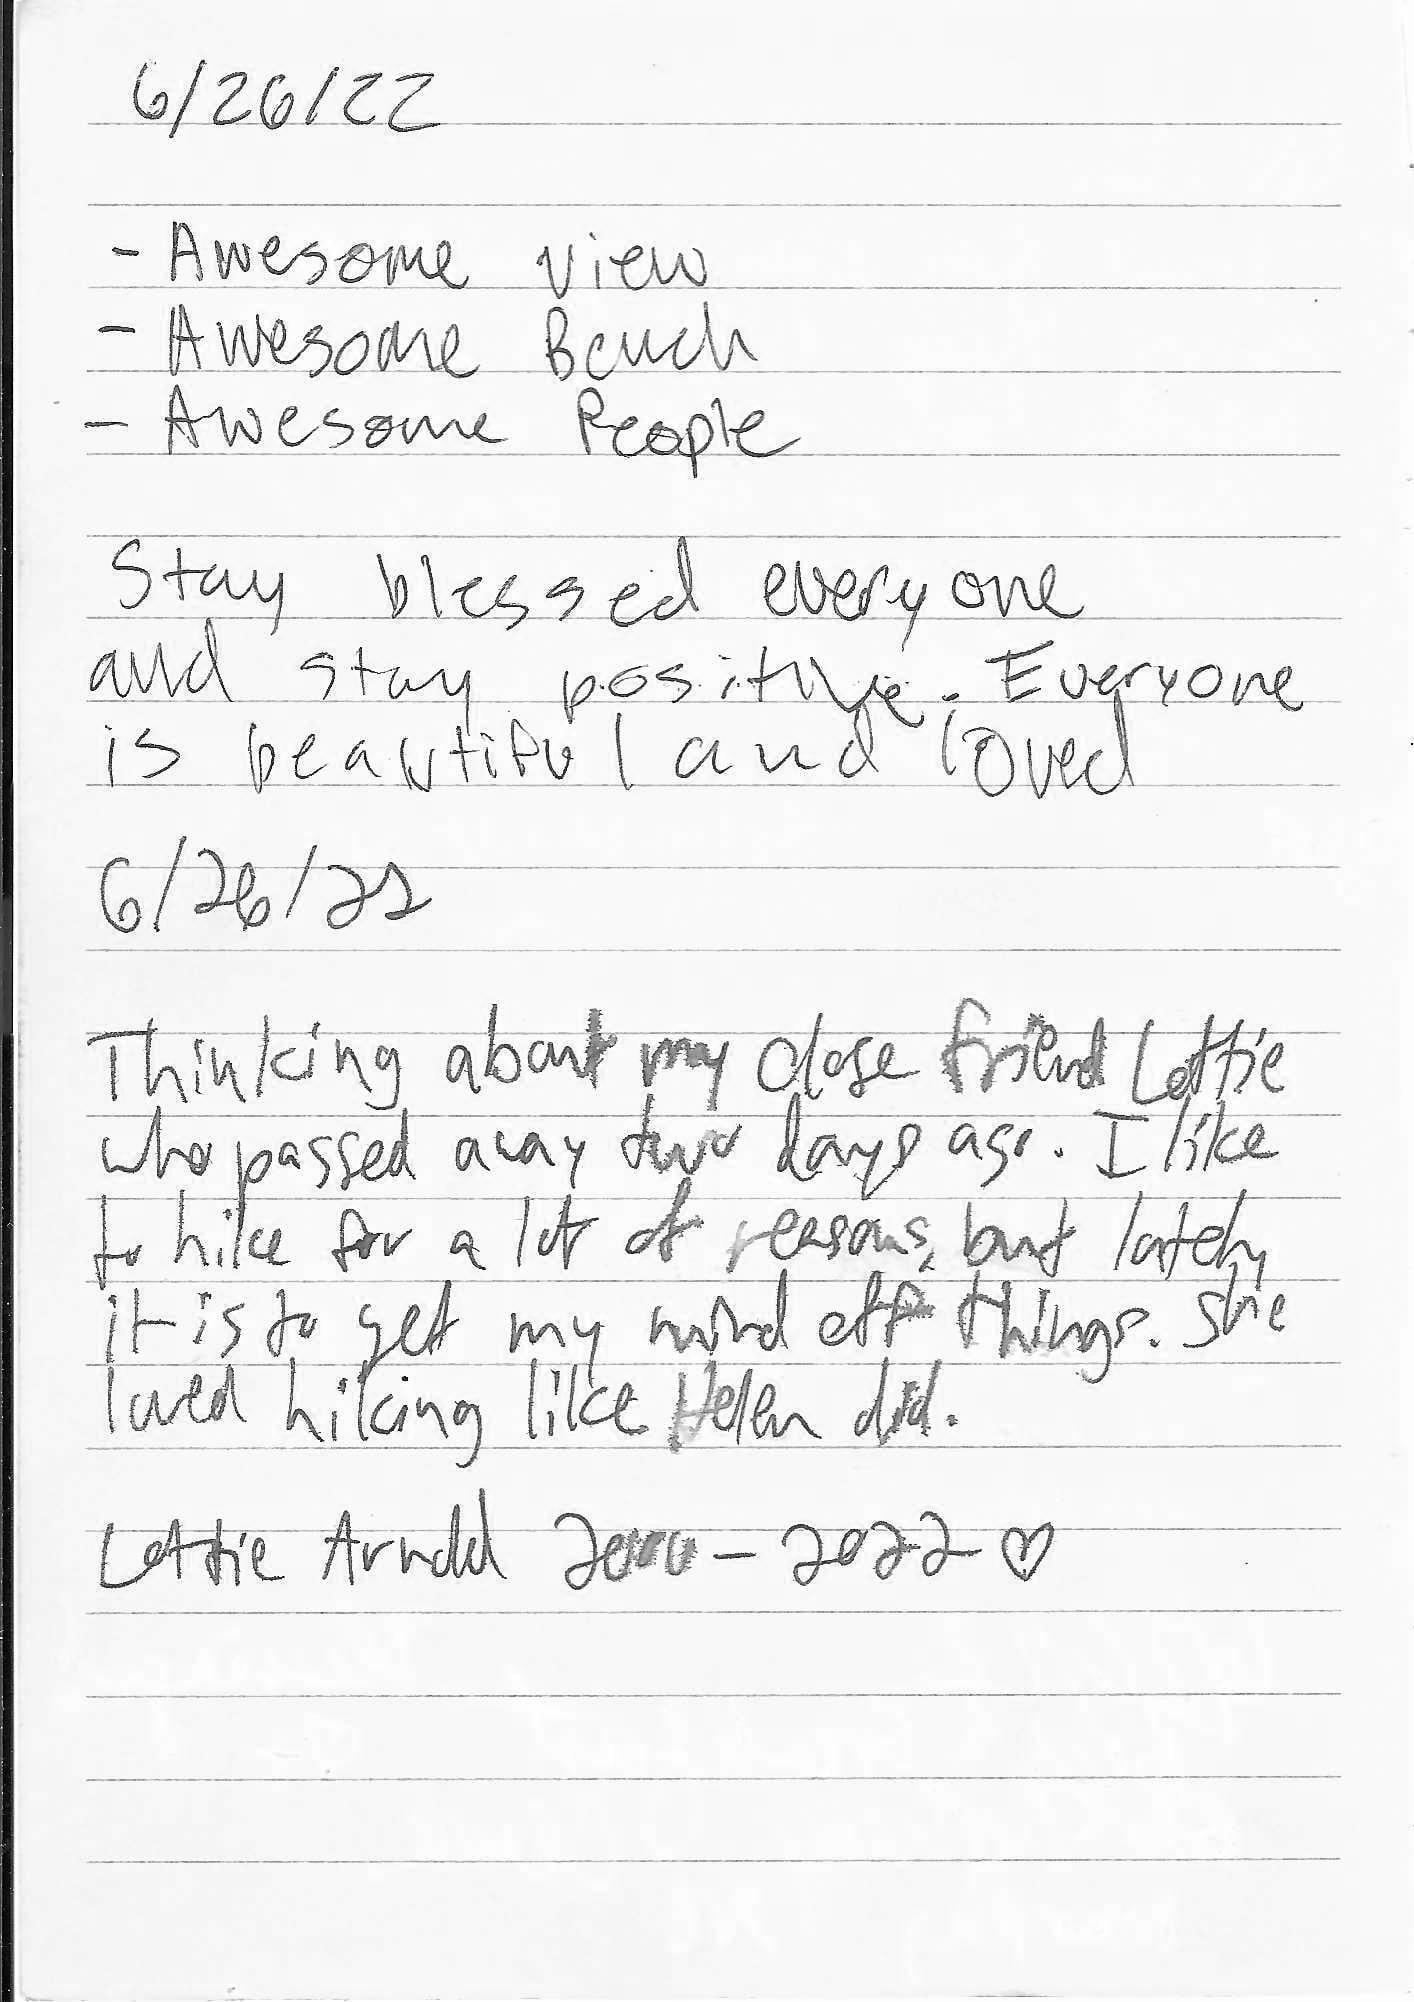 6/26/22
- Awesome view
- Awesome Bench
- Awesome People
Stay blessed everyone
and stay positive. Everyone
is beautiful and loved
6/26/22
Thinking about my close friend Lottie
who passed away two days ago. I like
to hike for a lot of reasons, but lately
it is to get my mind off things. She
loved hiking like Helen did.
Lottie Arnold 2000 - 2022 ♡